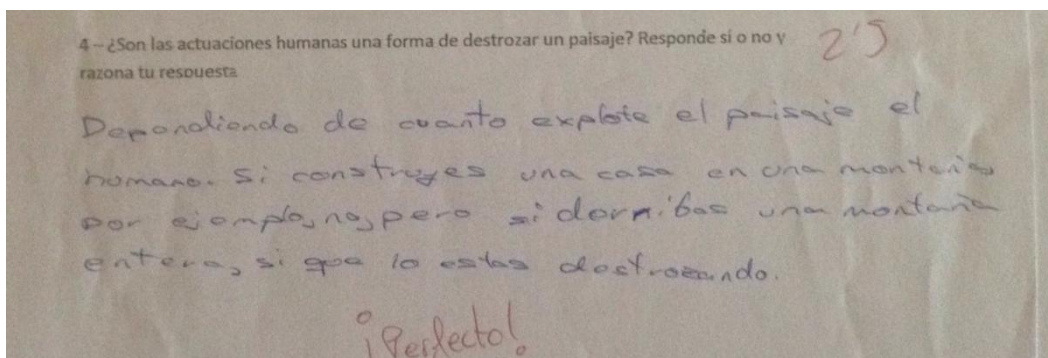 4 – ¿Son las actuaciones humanas una forma de destrozar un paisaje? Responde si o no y
razona tu respuesta
2'5
Dependiendo de cuanto explote el paisaje el
humano. Si construyes una casa en una montaña
por ejemplo, no, pero si derribas una montaña
entera, si que lo estas destrozando.
¡Perfecto!